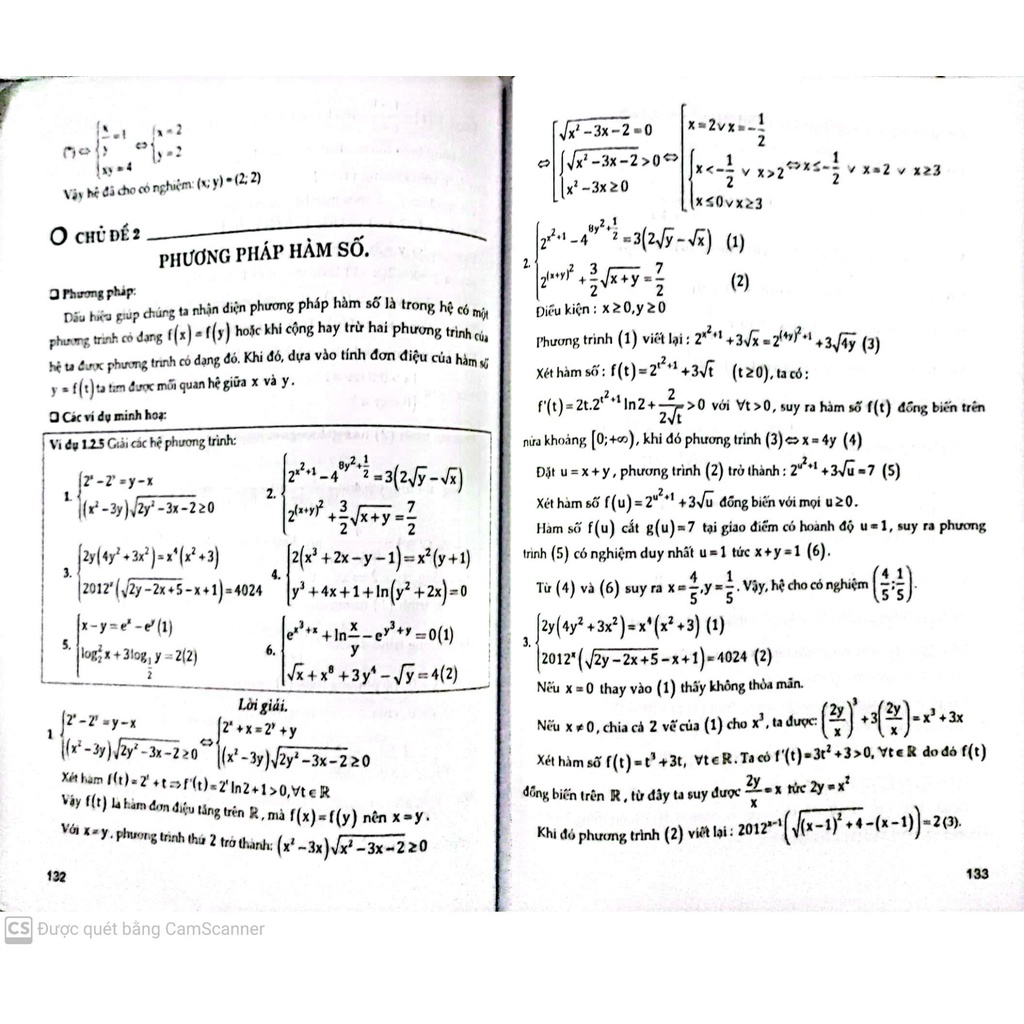 (*) ⇔ { x/y = 1; xy = 4 ⇔ { x = 2; y = 2
Vậy hệ đã cho có nghiệm: (x; y) = (2; 2)
CHỦ ĐỀ 2
PHƯƠNG PHÁP HÀM SỐ.
❑ Phương pháp:
Dấu hiệu giúp chúng ta nhận diện phương pháp hàm số là trong hệ có một
phương trình có dạng f(x) = f(y) hoặc khi cộng hay trừ hai phương trình của
hệ ta được phương trình có dạng đó. Khi đó, dựa vào tính đơn điệu của hàm số
y = f(t) ta tìm được mối quan hệ giữa x và y.
❑ Các ví dụ minh hoạ:
Ví dụ 1.2.5 Giải các hệ phương trình:
1. { 2^x − 2^y = y − x; (x² − 3y)√(2y² − 3x − 2) ≥ 0
2. { 2^(x²+1) − 4^(8y²+1/2) = 3(2√y − √x); 2^((x+y)²) + 3/2 √(x+y) = 7/2
3. { 2y(4y² + 3x²) = x⁴(x² + 3); 2012^x(√(2y − 2x + 5) − x + 1) = 4024
4. { 2(x³ + 2x − y − 1) = x²(y + 1); y³ + 4x + 1 + ln(y² + 2x) = 0
5. { x − y = e^x − e^y (1); log₂²x + 3log_(1/2) y = 2 (2)
6. { e^(x³+x) + ln x/y − e^(y³+y) = 0 (1); √x + x⁸ + 3y⁴ − √y = 4 (2)
Lời giải.
1 { 2^x − 2^y = y − x; (x² − 3y)√(2y² − 3x − 2) ≥ 0 ⇔ { 2^x + x = 2^y + y; (x² − 3y)√(2y² − 3x − 2) ≥ 0
Xét hàm f(t) = 2^t + t ⇒ f'(t) = 2^t ln2 + 1 > 0, ∀t ∈ ℝ
Vậy f(t) là hàm đơn điệu tăng trên ℝ, mà f(x) = f(y) nên x = y.
Với x = y, phương trình thứ 2 trở thành: (x² − 3x)√(x² − 3x − 2) ≥ 0
132
⇔ [ √(x² − 3x − 2) = 0; { √(x² − 3x − 2) > 0; x² − 3x ≥ 0 ⇔ [ x = 2 ∨ x = −1/2; { x < −1/2 ∨ x > 2; x ≤ 0 ∨ x ≥ 3 ⇔ x ≤ −1/2 ∨ x = 2 ∨ x ≥ 3
2. { 2^(x²+1) − 4^(8y²+1/2) = 3(2√y − √x) (1); 2^((x+y)²) + 3/2 √(x+y) = 7/2 (2)
Điều kiện : x ≥ 0, y ≥ 0
Phương trình (1) viết lại : 2^(x²+1) + 3√x = 2^((4y)²+1) + 3√(4y) (3)
Xét hàm số : f(t) = 2^(t²+1) + 3√t (t ≥ 0), ta có :
f'(t) = 2t.2^(t²+1) ln2 + 2/(2√t) > 0 với ∀t > 0, suy ra hàm số f(t) đồng biến trên
nửa khoảng [0; +∞), khi đó phương trình (3) ⇔ x = 4y (4)
Đặt u = x + y, phương trình (2) trở thành : 2^(u²+1) + 3√u = 7 (5)
Xét hàm số f(u) = 2^(u²+1) + 3√u đồng biến với mọi u ≥ 0.
Hàm số f(u) cắt g(u) = 7 tại giao điểm có hoành độ u = 1, suy ra phương
trình (5) có nghiệm duy nhất u = 1 tức x + y = 1 (6).
Từ (4) và (6) suy ra x = 4/5, y = 1/5. Vậy, hệ cho có nghiệm (4/5; 1/5).
3. { 2y(4y² + 3x²) = x⁴(x² + 3) (1); 2012^x(√(2y − 2x + 5) − x + 1) = 4024 (2)
Nếu x = 0 thay vào (1) thấy không thỏa mãn.
Nếu x ≠ 0, chia cả 2 vế của (1) cho x³, ta được: (2y/x)³ + 3(2y/x) = x³ + 3x
Xét hàm số f(t) = t³ + 3t, ∀t ∈ ℝ. Ta có f'(t) = 3t² + 3 > 0, ∀t ∈ ℝ do đó f(t)
đồng biến trên ℝ, từ đây ta suy được 2y/x = x tức 2y = x²
Khi đó phương trình (2) viết lại : 2012^(x−1)(√((x−1)² + 4) − (x − 1)) = 2 (3).
133
CS Được quét bằng CamScanner